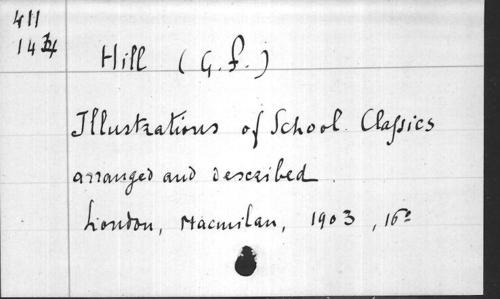 411
Hill (G. f.)
Illustrations of School Classics
arranged and described
London, Macmilan, 1903, 16º